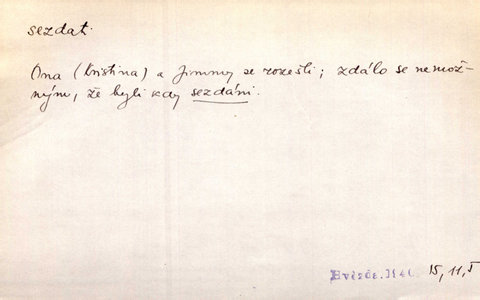 sezdat.
Ona (Kristina) a Jimmy se rozešli; zdálo se nemož-
ným, že byli kdy sezdáni.
15, 11, 5